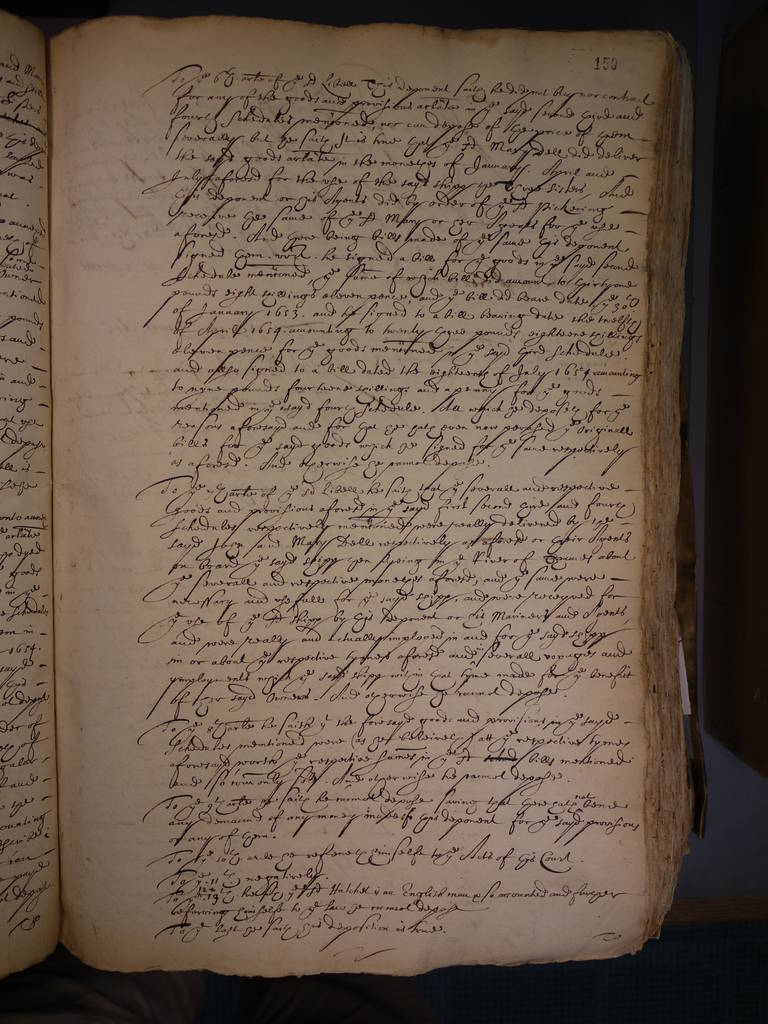 159
To ye 6th arte of ye sd Libell this deponent saith hee did not buy nor contract
for any of the goods and provisions arlate in ye sayd second third and
fourth Schedules mentioned, nor can depose of the price of them
severally, but he saith It is true that ye sd Mary Dell did deliver
the sayd goods arlate in the monethes of January April and
July aforesd for the use of the sayd shipp the Three Sisters, And
this deponent or his Agents did by order of ye sd Pickering
receive the same of ye sd Mary or her Agents for ye use
aforesd. And there being bills made of ye same this deponent
signed them, he signed a bill for ye goods in ye sayd second
Schedule mentioned ye summe of which bill did amount to thirtyone
pounds eight shillings eleven pence, and ye bill did beare date ye 30th
of January 1653. and he signed to a bill bearing date the twelfth
of April 1654. amounting to twenty three pounds eighteene shillings
eleven pence for ye goods mentioned in ye sayd third Schedule
and allso signed to a bill dated the eighteenth of July 1654 amounting
to nyne pounds fourteene shillings and a penny for ye goods
mentioned in ye sayd fourth Schedule. All which he deposeth for ye
reasons aforesayd and for that he hath even now perused ye originall
bills for ye sayd goods which he signed for ye same respectively
as aforesd. And otherwise he cannot depose.
To ye arte of ye sd Libell he saith that ye severall and respective
goods and provisions aforesd in ye sayd first second third and fourth
Schedules respectively mentioned were really delivered by the
sayd John and Mary Dell respectively as aforesd or their Agents
on board ye sayd shipp then lying in ye River of Thames about
ye severall and respective monethes aforesd, and ye same were
necessary and usefull for ye sayd shipp, and were received for
ye use of ye sd shipp by this deponent or his Mariners and Agents,
and were really and actually imployed in and for ye sayd shipp
in or about ye respective tymes aforesd and severall voyages and
imployments which ye sayd shipp within that tyme made for ye benefit
of her sayd Owners. And otherwise he cannot depose.
To ye arte he saith yt the foresayd goods and provisions in ye sayd
Schedules mentioned were (as hee beleiveth) att ye respective tymes
aforesayd worth ye respective summes in ye sd bills mentioned
and so commonly sold. And otherwise he cannot depose.
To ye arte he saith he cannot depose saving that there hath not bene
any demand of any money made to this deponent for ye sayd provisions
or any of them.
To ye 10th arle he referreth himselfe to ye Acts of this Court.
To ye 11th negatively.
To ye he saith ye sd Hatchet is an English man & so accounted and further
referring himselfe to ye law he cannot depose
To ye last he saith his deposition is true.